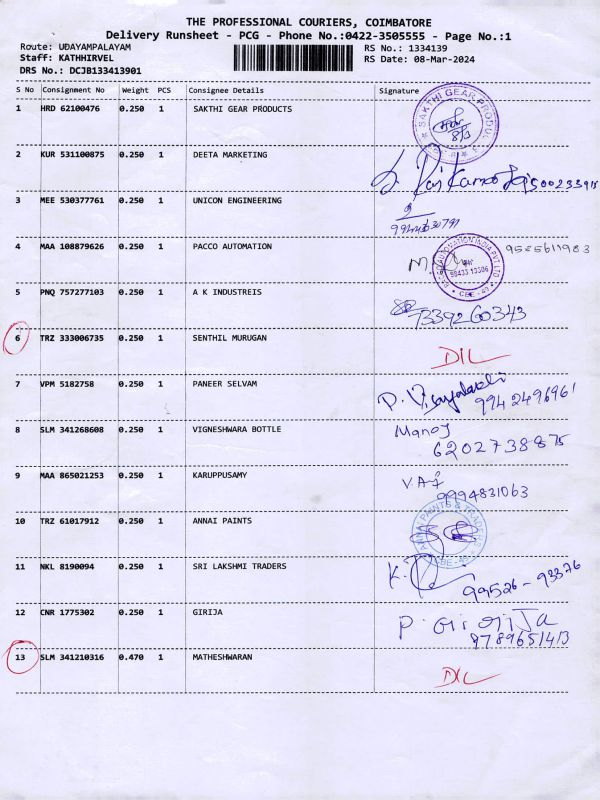 THE PROFESSIONAL COURIERS, COIMBATORE
Delivery Runsheet - PCG - Phone No.:0422-3505555 - Page No.:1
Route: UDAYAMPALAYAM RS No.: 1334139
Staff: KATHHIRVEL RS Date: 08-Mar-2024
DRS No.: DCJB133413901
S No Consignment No Weight PCS Consignee Details Signature
1 HRD 62100476 0.250 1 SAKTHI GEAR PRODUCTS SAKTHI GEAR PRODU 8/3
2 KUR 531100875 0.250 1 DEETA MARKETING
3 MEE 530377761 0.250 1 UNICON ENGINEERING
4 MAA 108879626 0.250 1 PACCO AUTOMATION AUTOMATION INDIA PVT LTD CBE-49
5 PNQ 757277103 0.250 1 A K INDUSTREIS 7339260343
6 TRZ 333006735 0.250 1 SENTHIL MURUGAN DIL
7 VPM 5182758 0.250 1 PANEER SELVAM 9942496961
8 SLM 341268608 0.250 1 VIGNESHWARA BOTTLE Manoj
6202738875
9 MAA 865021253 0.250 1 KARUPPUSAMY
9994831063
10 TRZ 61017912 0.250 1 ANNAI PAINTS ANNAI PAINTS & TRADERS
11 NKL 8190094 0.250 1 SRI LAKSHMI TRADERS 99526-93376
12 CNR 1775302 0.250 1 GIRIJA P. GIRIJA
9789651413
13 SLM 341210316 0.470 1 MATHESHWARAN DIL